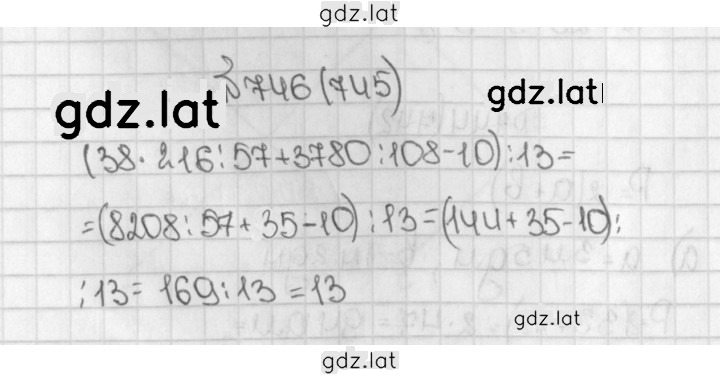 gdz.lat
№746 (745)
gdz.lat gdz.lat
(38·216:57+3780:108-10):13=
=(8208:57+35-10):13=(144+35-10):
:13=169:13=13
gdz.lat
gdz.lat